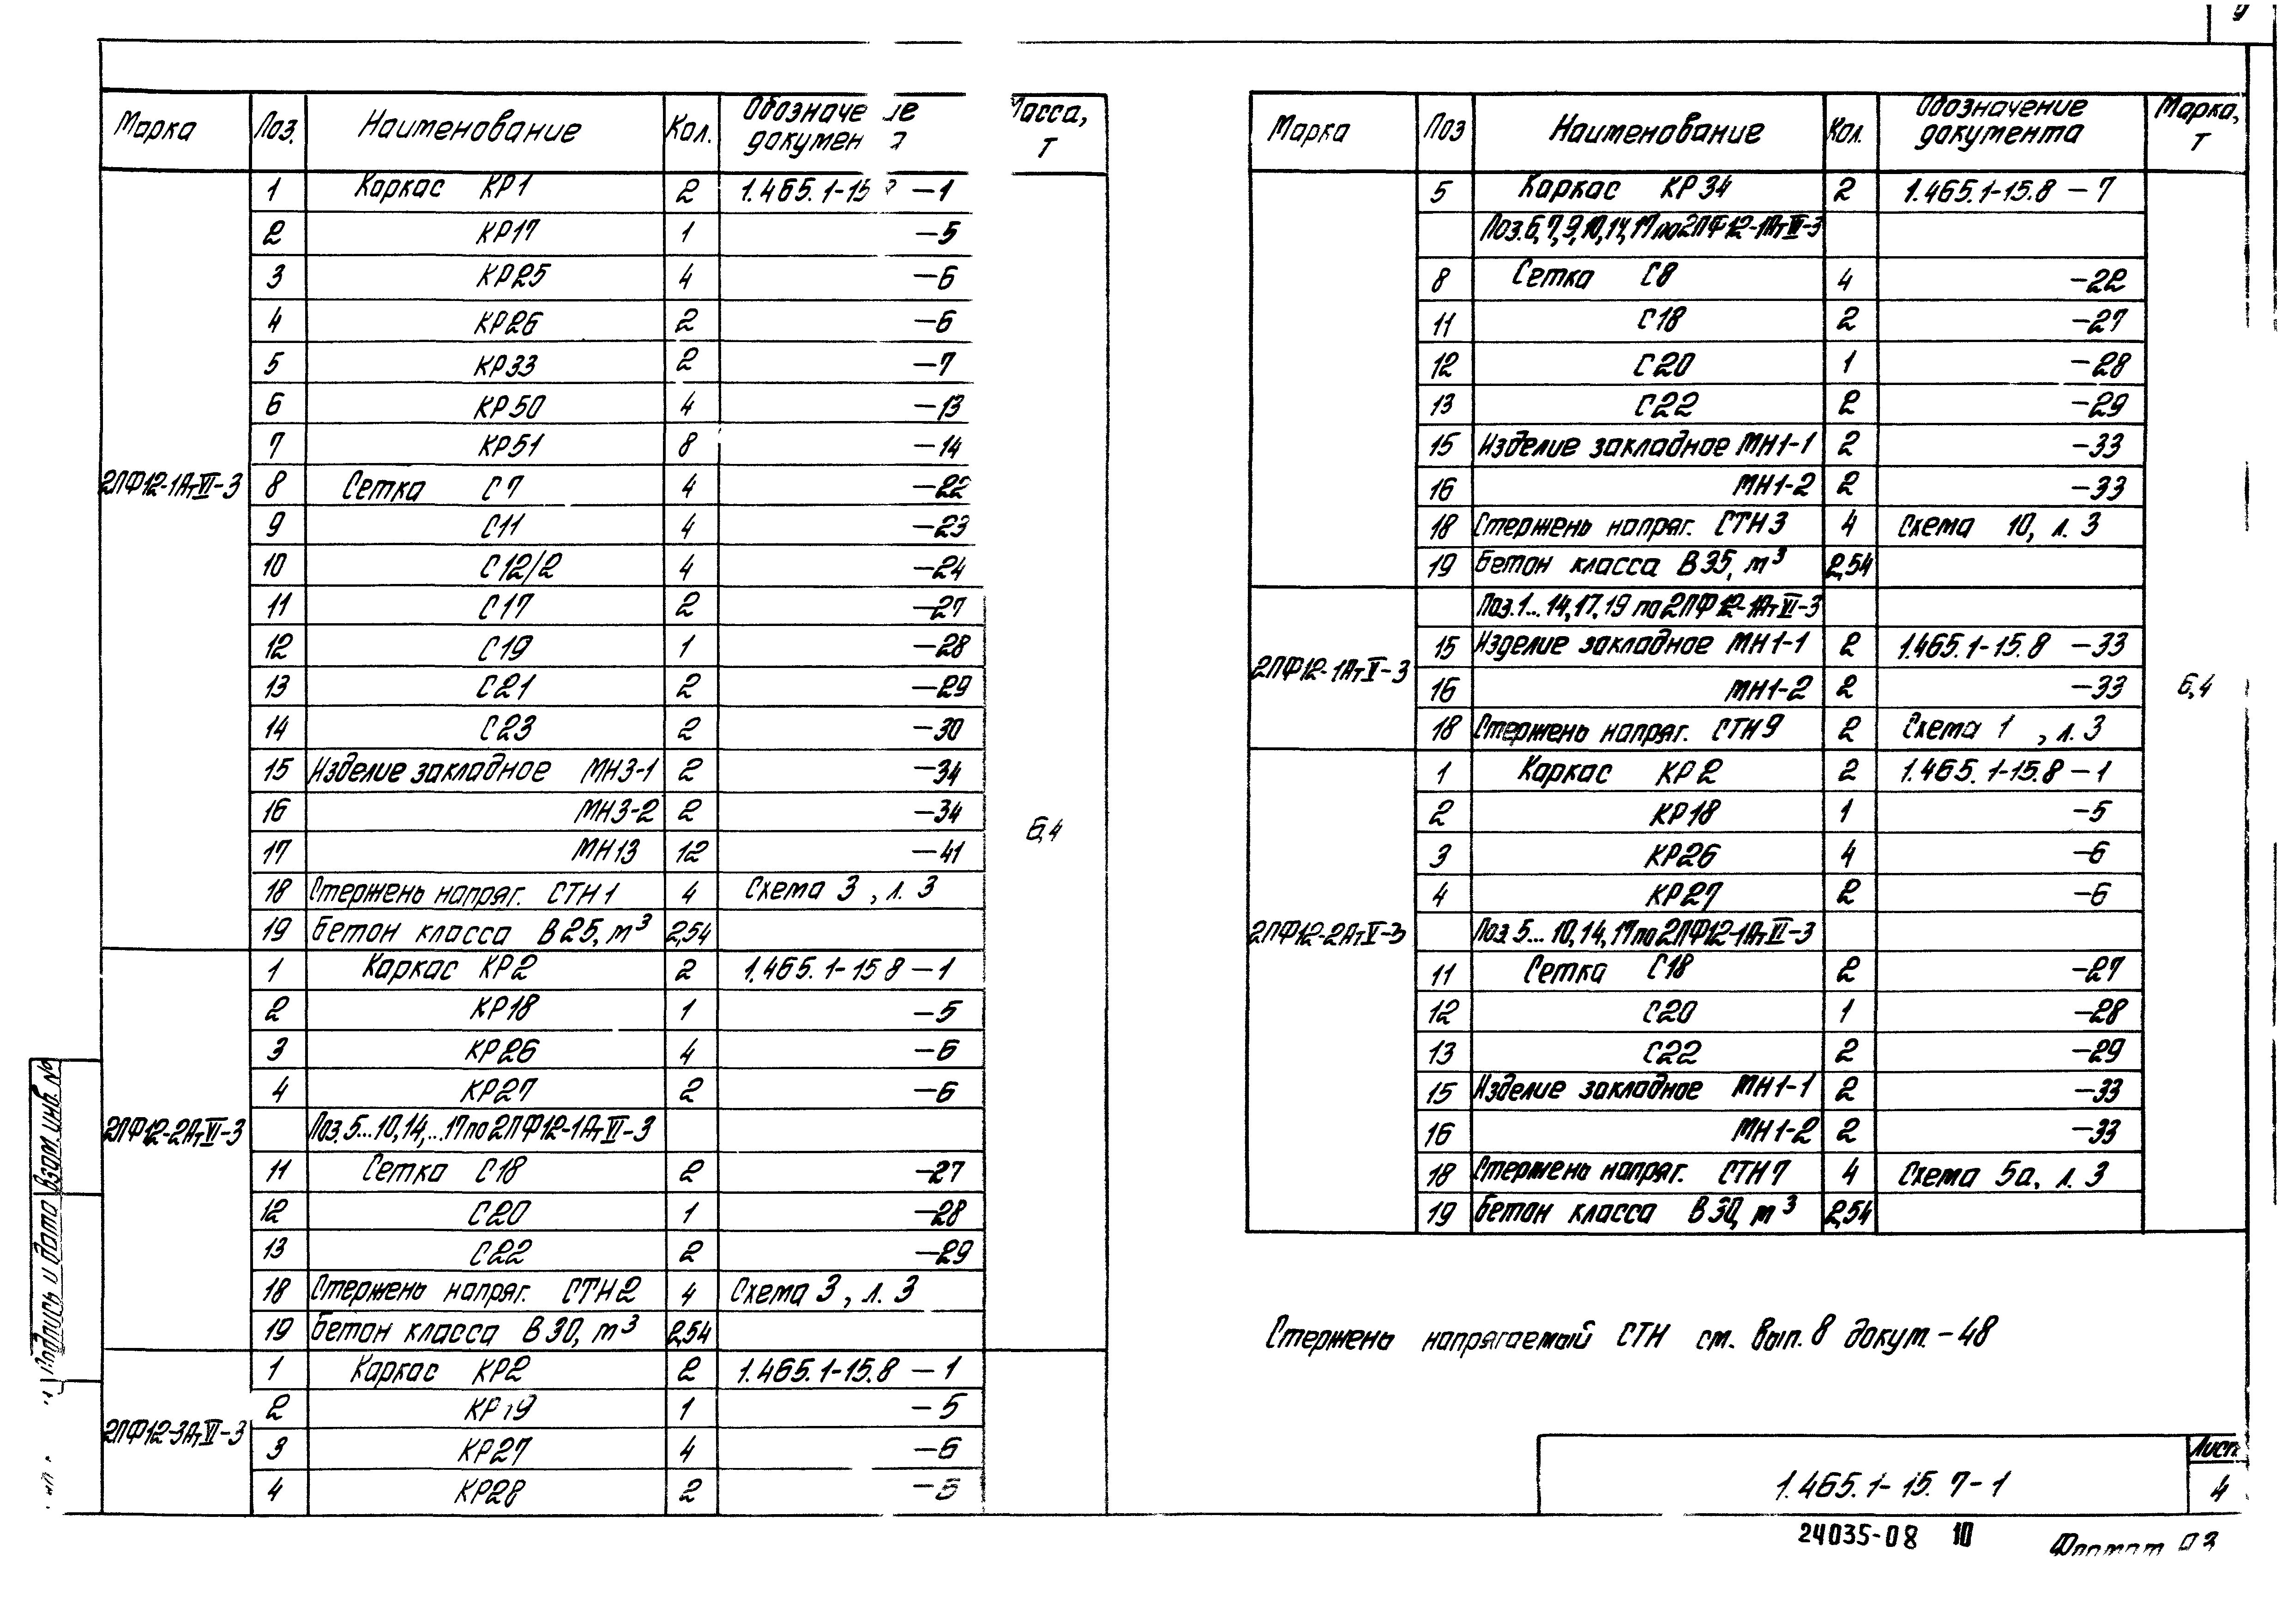 9
Марка Поз. Наименование Кол. Обозначе ие докумен а Масса, т
1 Каркас КР1 2 1.465.1-15 –1
2 КР17 1 –5
3 КР25 4 –6
4 КР26 2 –6
5 КР33 2 –7
6 КР50 4 –13
7 КР51 8 –14
2ПФ12-1АтVI-3 8 Сетка С7 4 –22
9 С11 4 –23
10 С12/2 4 –24
11 С17 2 –27
12 С19 1 –28
13 С21 2 –29
14 С23 2 –30
15 Изделие закладное МН3-1 2 –34
16 МН3-2 2 –34
17 МН13 12 –41
6,4
18 Стержень напряг. СТН1 4 Схема 3, л. 3
19 Бетон класса В25, м³ 2,54
1 Каркас КР2 2 1.465.1-15 8 –1
2 КР18 1 –5
3 КР26 4 –6
4 КР27 2 –6
2ПФ12-2АтVI-3 Поз. 5...10,14,...17 по 2ПФ12-1АтVI-3
11 Сетка С18 2 –27
12 С20 1 –28
13 С22 2 –29
18 Стержень напряг. СТН2 4 Схема 3, л. 3
19 Бетон класса В30, м³ 2,54
1 Каркас КР2 2 1.465.1-15.8 –1
2 КР19 1 –5
2ПФ12-3АтVI-3
3 КР27 4 –6
4 КР28 2 –6
Марка Поз Наименование Кол. Обозначение документа Марка, т
5 Каркас КР34 2 1.465.1-15.8 –7
Поз.6,7,9,10,14,17 по 2ПФ12-1АтVI-3
8 Сетка С8 4 –22
11 С18 2 –27
12 С20 1 –28
13 С22 2 –29
15 Изделие закладное МН1-1 2 –33
16 МН1-2 2 –33
18 Стержень напряг. СТН3 4 Схема 10, л. 3
19 Бетон класса В35, м³ 2,54
Поз.1...14,17,19 по 2ПФ12-1АтVI-3
15 Изделие закладное МН1-1 2 1.465.1-15.8 –33
2ПФ12-1АтV-3
16 МН1-2 2 –33 6,4
18 Стержень напряг. СТН9 2 Схема 1 , л. 3
1 Каркас КР2 2 1.465.1-15.8 –1
2 КР18 1 –5
3 КР26 4 –6
4 КР27 2 –6
2ПФ12-2АтV-3 Поз. 5...10,14,17 по 2ПФ12-1АтVI-3
11 Сетка С18 2 –27
12 С20 1 –28
13 С22 2 –29
15 Изделие закладное МН1-1 2 –33
16 МН1-2 2 –33
18 Стержень напряг. СТН7 4 Схема 5а, л. 3
19 Бетон класса В30, м³ 2,54
Стержень напрягаемый СТН см. вып. 8 докум. –48
Взам. инв. №
Подпись и дата
1.465.1-15.7-1
Лист
4
24035-08 10
Формат А3